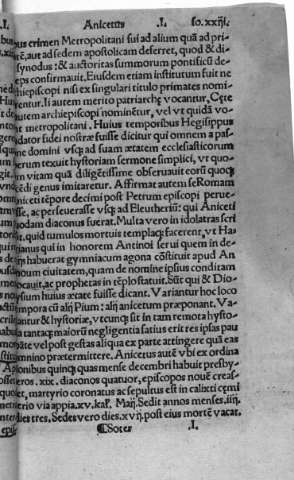 Anicetus .I. fo.xxiiȷ.
crimen Metropolitani sui ad alium quā ad pri-
tē, aut ad sedem apostolicam deferret, quod & di-
synodus: & auctoritas summorum pontificū de-
eps confirmauit. Eiusdem etiam institutum fuit ne
hiepiscopi nisi ex singulari titulo primates nomi-
entur. Ii autem merito patriarchę vocantur. Cęte
autem archiepiscopi nominētur, vel vt quidā vo-
nt metropolitani. Huius temporibus Hegisippus
dator fidei nostrae fuisse dicitur qui omnem a pas-
ne domini vsq; ad suam ætatem ecclesiasticorum
herum texuit hystoriam sermone simplici, vt quo-
vitam quā diligētissime obseruauit eorū quoq;
cēdi genus imitaretur. Affirmat autem se Romam
niceti tēpore decimi post Petrum episcopi perue-
sse, ac perseuerasse vsq; ad Eleutheriū: qui Aniceti
odam diaconus fuerat. Multa vero in idolatras scri
quid tumulos mortuis templaq; facerent, vt Ha
rianus qui in honorem Antinoi serui quem in de-
habuerat gymniacum agona cōstituit apud An
noum ciuitatem, quam de nomine ipsius conditam
ocauit, ac prophetas in tēplo statuit. Sūt qui & Dio
nysium huius ætate fuisse dicant. Variantur hoc loco
tempora cū alij Pium: alij anicetum præponant. Va-
riantur & hystoriæ, vt cunq; sit in tam remota hysto-
tantaq; maiorū negligentia satius erit res ipsas pau
āte vel post gestas aliqua ex parte attingere quā eas
omnino prætermittere. Anicetus autē vbi ex ordina
tionibus quinq; quas mense decembri habuit presby-
teros .xix. diaconos quatuor, episcopos nouē creas-
et, martyrio coronatus ac sepultus est in calixti cœmi
terio via appia .xv. kal. Maij. Sedit annos menses .iiij.
dies tres. Sedes vero dies .xvij. post eius mortē vacat.
¶Soter .I.